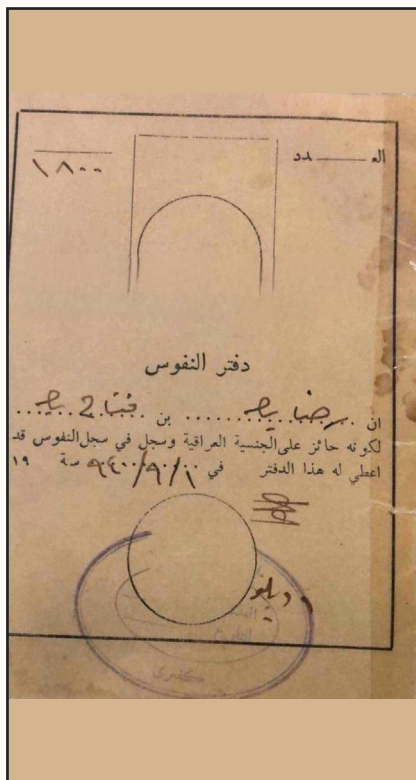 العـــــدد
١٨٠٠
دفتر النفوس
ان ........ بن ........
لكونه حائز على الجنسية العراقية وسجل في سجل النفوس قد
اعطي له هذا الدفتر في ٩٤٠/٩/١ سنة ١٩
التاريخ
كفري